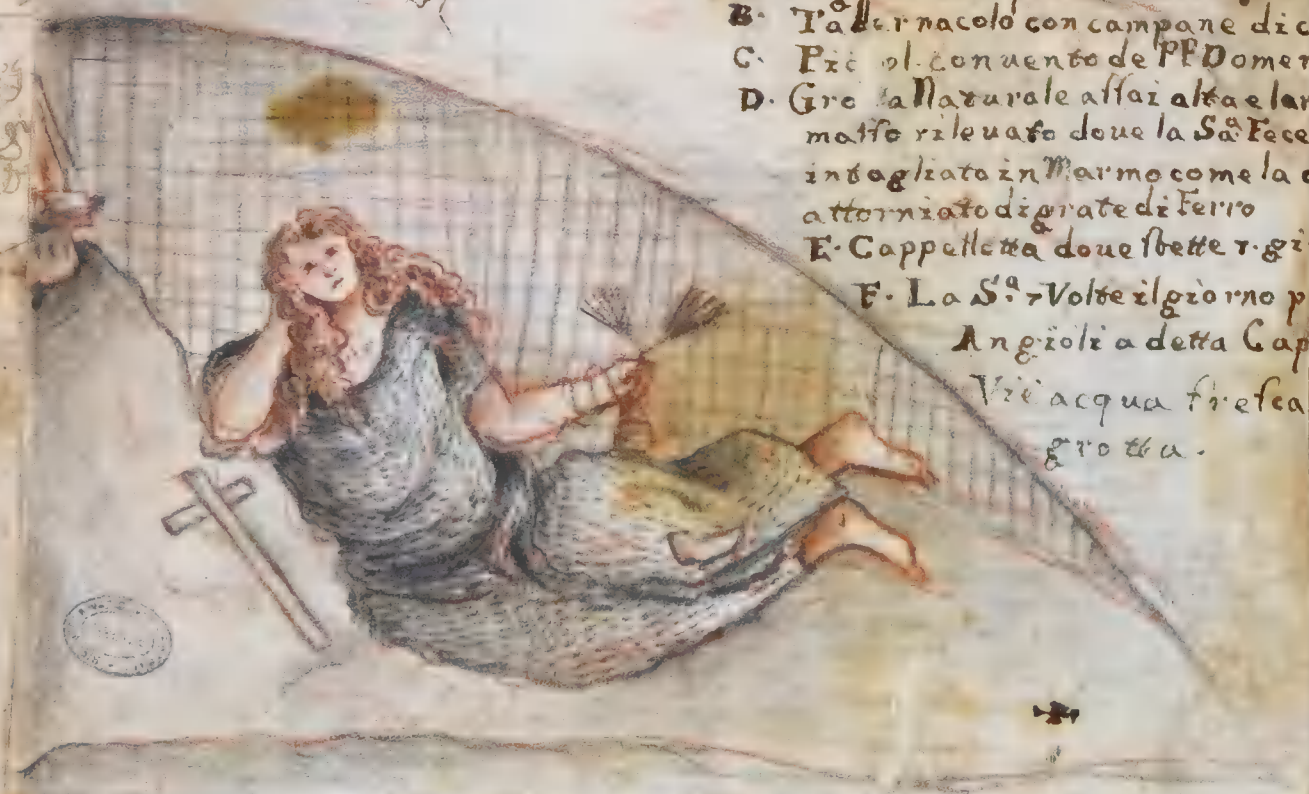 B. Ta&ast;rnacolo con campane di c
C. Pic ol conuento de PP Domen
D. Gro a Naturale assai alta e lar
masso rileuato doue la Sª Fece
intagliato in Marmo come la
attorniato di grate di Ferro
E. Cappelletta doue stette 7. gi
F. La Sª 7 Volte il giorno p
Angioli a detta Cap
Vi è acqua fresca
grotta.